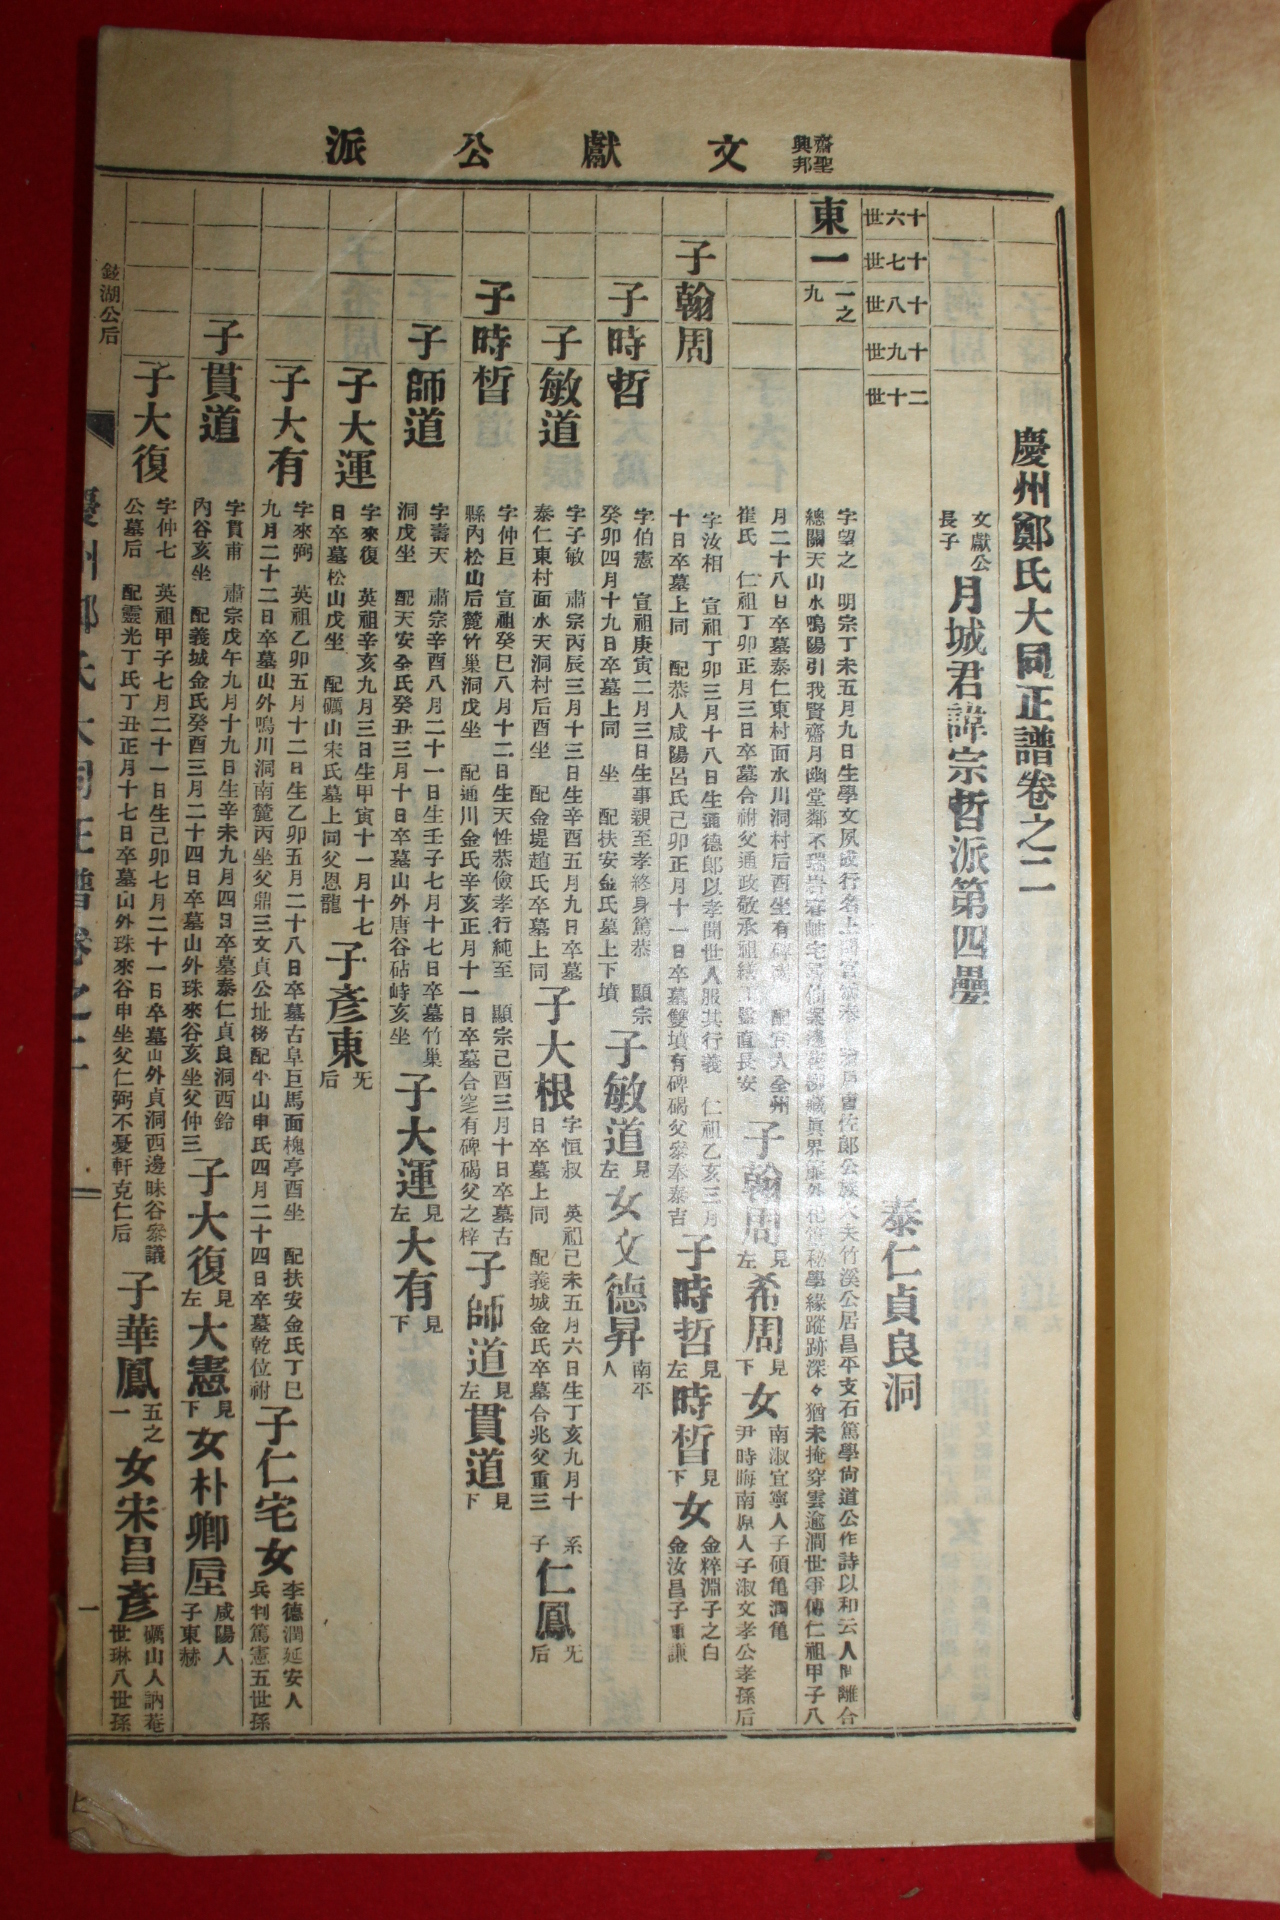 齋聖
興邦
文獻公派
慶州鄭氏大同正譜卷之二
文獻公
長子
月城君諱宗哲派第四疊
十六世
十七世
十八世
十九世
二十世
泰仁貞良洞
東一
一之
九
字望之 明宗丁未五月九日生學文夙
總關天山水鳴陽引我賢齋月幽堂鄰不
月二十八日卒墓泰仁東村面水川洞村后酉坐有碑 配 人全州
崔氏 仁祖丁卯正月三日卒墓合祔父通政敬承祖
子翰周
見
左
希周
見
下
女
南淑宜寧人子碩亀潤亀
尹時晦南原人子淑文孝公孝孫后
子翰周
字汝相 宣祖丁卯三月十八日生通德郎以孝聞世人服其行義 仁祖乙亥三月
十日卒墓上同 配恭人咸陽呂氏己卯正月十一日卒墓雙墳有碑碣父參奉泰吉
子時哲
見
左
時晳
見
下
女
金粹淵子之白
金汝昌子重謙
子時哲
字伯憲 宣祖庚寅二月三日生事親至孝終身篤恭 顯宗
癸卯四月十九日卒墓上同 坐 配扶安金氏墓上下墳
子敏道
見
左
女文德昇
南平
人
子敏道
字子敏 肅宗丙辰三月十三日生辛酉五月九日卒墓
泰仁東村面水天洞村后酉坐 配金堤趙氏卒墓上同
子大根
字恒叔 英祖己未五月六日生丁亥九月十
日卒墓上同 配義城金氏卒墓合兆父重三
系
子
仁鳳
旡
后
子時晳
字仲巨 宣祖癸巳八月十二日生天性恭儉孝行純至 顯宗己酉三月十日卒墓古
縣內松山后麓竹巢洞戊坐 配通川金氏辛亥正月十一日卒墓合窆有碑碣父之梓
子師道
見
左
貫道
見
下
子師道
字壽天 肅宗辛酉八月二十一日生壬子七月十七日卒墓竹巢
洞戊坐 配天安全氏癸丑三月十日卒墓山外唐谷砧峙亥坐
子大運
見
左
大有
見
下
子大運
字來復 英祖辛亥九月三日生甲寅十一月十七
日卒墓松山戊坐 配礪山宋氏墓上同父恩龍
子彥東
旡
后
子大有
字來弼 英祖乙卯五月十二日生乙卯五月二十八日卒墓古阜巨馬面槐亭酉坐 配扶安金氏丁巳
九月二十二日卒墓山外鳴川洞南麓丙坐父鼎三文貞公址
配 山申氏四月二十四日卒墓乾位祔
子仁宅
女
李德潤延安人
兵判篤憲五世孫
子貫道
字貫甫 肅宗戊午九月十九日生辛未九月四日卒墓泰仁貞良洞西鈴
內谷亥坐 配義城金氏癸酉三月二十四日卒墓山外珠來谷亥坐父仲三
子大復
見
左
大憲
見
下
女朴卿垕
咸陽人
子東赫
子大復
字仲七 英祖甲子七月二十一日生己卯七月二十一日卒墓山外貞洞西邊昧谷參議
公墓后 配靈光丁氏丁丑正月十七日卒墓山外珠來谷申坐父仁弼不憂軒克仁后
子華鳳
五之
一
女宋昌彥
礪山人訥菴
世琳八世孫
湖公后
慶州鄭氏大同正譜卷之二
一